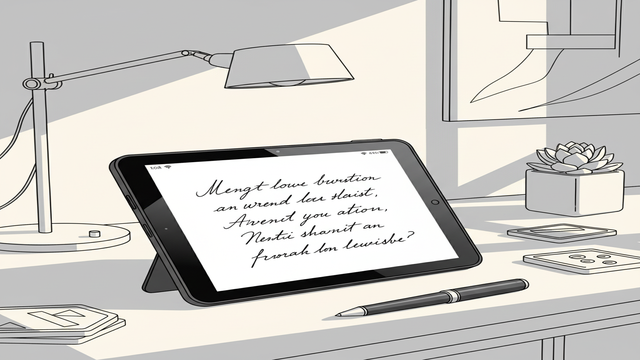 Mengt lowe burstion
an wrend leu tlaist,
Awenit you ation,
Nestii shanit an
fruorah lon lewisbe?